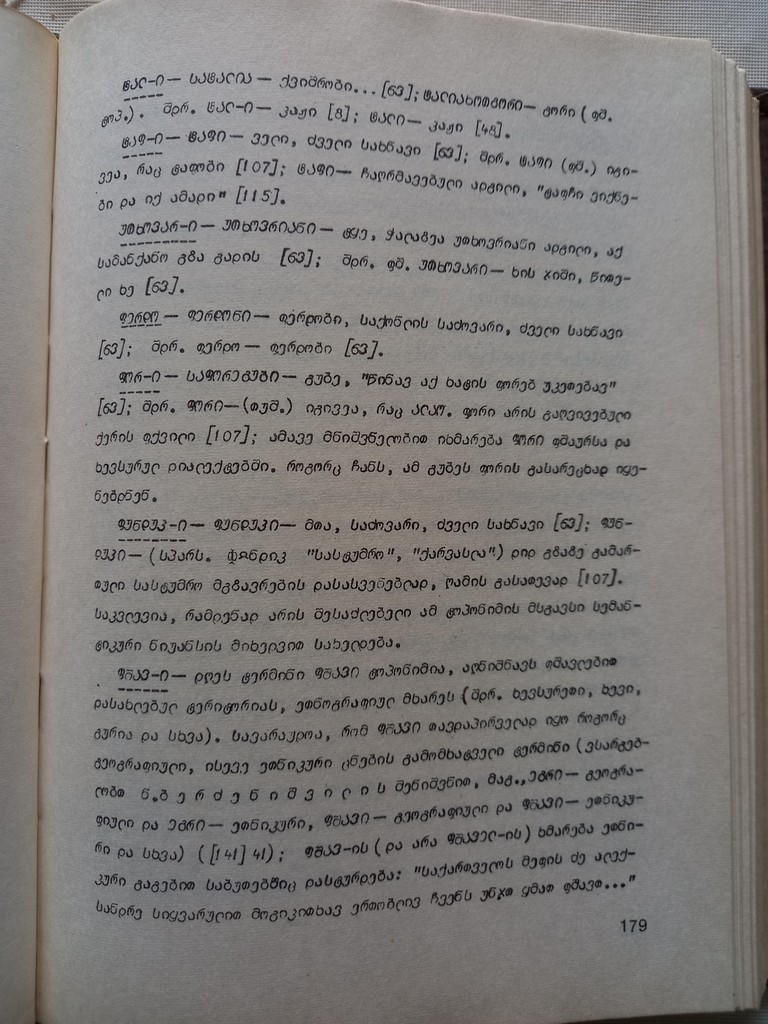 ტალ-ი — სატალია — ქვიშრობი... [63]; ტალიახოთგორი — გორი (ფშ.
ტოპ.). შდრ. ტალ-ი — კაჟი [8]; ტალი — კაჟი [48].
ტაფ-ი — ტაფი — ველი, ძველი სახნავი [63]; შდრ. ტაფი (ფშ.) იგი-
ვეა, რაც ტაფობი [107]; ტაფი — ჩაღრმავებული ადგილი, "ტაფჩი ვიქნე-
ბი და იქ ამადი" [115].
უთხოვარ-ი — უთხოვრიანი — ტყე, ჭალაზეა უთხოვრიანი ადგილი, აქ
სამანქანო გზა გადის [63]; შდრ. ფშ. უთხოვარი — ხის ჯიში, წითე-
ლი ხე [63].
ფერდო — ფერდონი — ფერდობი, საქონლის საძოვარი, ძველი სახნავი
[63]; შდრ. ფერდო — ფერდობი [63].
ფორ-ი — საფორეგუბი — გუბე, "წინავ აქ ხატის ფორებ უკეთებავ"
[63]; შდრ. ფორი — (თუშ.) იგივეა, რაც ალაო. ფორი არის გაღვივებული
ქერის ფქვილი [107]; ამავე მნიშვნელობით იხმარება ფორი ფშაურსა და
ხევსურულ დიალექტებში. როგორც ჩანს, ამ გუბეს ფორის გასარეცხად იყე-
ნებდნენ.
ფუნდუკ-ი — ფუნდუკი — მთა, საძოვარი, ძველი სახნავი [63]; ფუნ-
დუკი — (სპარს. "სასტუმრო", "ქარვასლა") დიდ გზაზე გამარ-
თული სასტუმრო მგზავრების დასასვენებლად, ღამის გასათევად [107].
საკვლევია, რამდენად არის შესაძლებელი ამ ტოპონიმის მსგავსი სემან-
ტიკური ნიუანსის მიხედვით სახელდება.
ფშავ-ი — დღეს ტერმინი ფშავი ტოპონიმია, აღნიშნავს ფშავლებით
დასახლებულ ტერიტორიას, ეთნოგრაფიულ მხარეს (შდრ. ხევსურეთი, ხევი,
გურია და სხვა). სავარაუდოა, რომ ფშავი თავდაპირველად იყო როგორც
გეოგრაფიული, ისევე ეთნიკური ცნების გამომხატველი ტერმინი (ვსარგებ-
ლობთ ნ. ბ ე რ ძ ე ნ ი შ ვ ი ლ ი ს შენიშვნით, მაგ., ეგრი — გეოგრა-
ფიული და ეგრი — ეთნიკური, ფშავი — გეოგრაფიული და ფშავი — ეთნიკუ-
რი და სხვა) ([141] 41); ფშავ-ის (და არა ფშაველ-ის) ხმარება ეთნი-
კური გაგებით საბუთებშიც დასტურდება: "საქართველოს მეფის ძე ალექ-
სანდრე სიყვარულით მოგიკითხავ ერთობლივ ჩვენს უნჯთ ყმათ ფშავთ..."
179